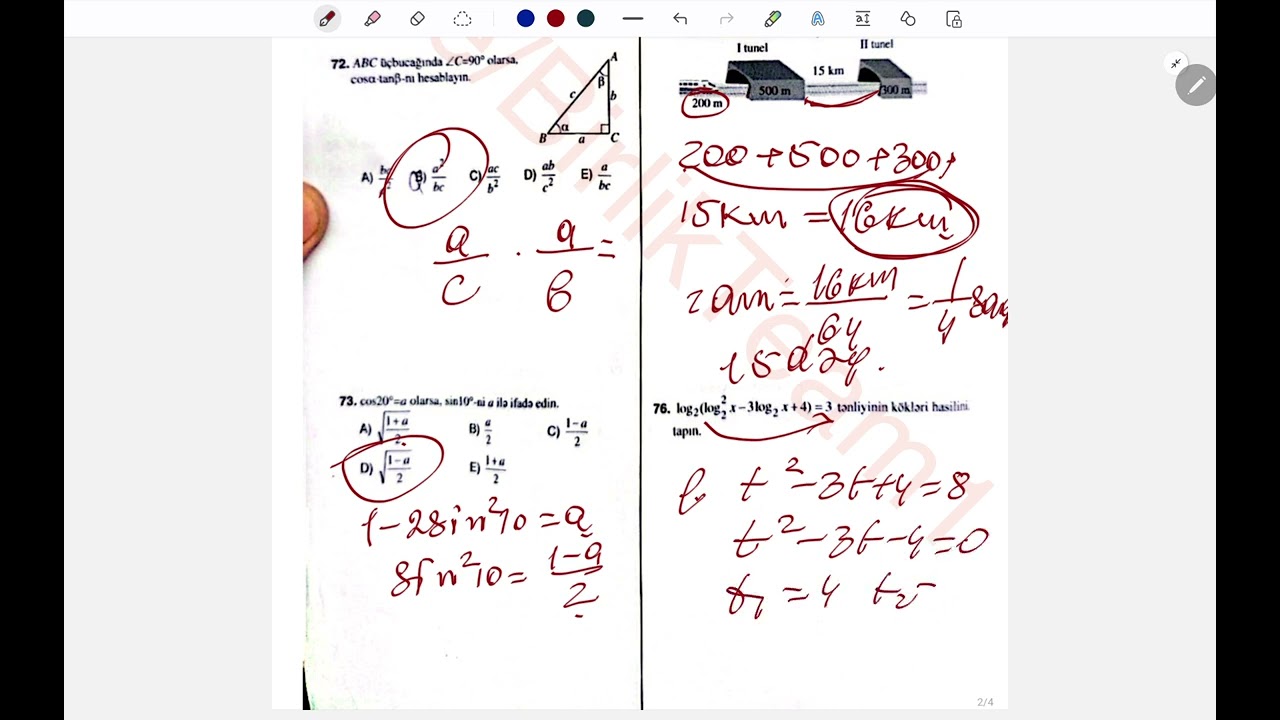 72. ABC üçbucağında ∠C=90° olarsa,
cosα·tanβ-nı hesablayın.
A
β
c
b
α
B
a
C
B) a²/bc
C) ac/b²
D) ab/c²
E) a/bc
a/c · a/b =
73. cos20°=a olarsa, sin10°-ni a ilə ifadə edin.
A) √((1+a)/2)
B) a/2
C) (1-a)/2
D) √((1-a)/2)
E) (1+a)/2
1-2sin²10=a
sin²10=(1-a)/2
I tunel
II tunel
15 km
500 m
300 m
200 m
200+500+300+
15km=16km
zam=16km/64=1/4 saat
15 dəq.
76. log₂(log₂²x-3log₂x+4)=3 tənliyinin kökləri hasilini
tapın.
t²-3t+4=8
t²-3t-4=0
t₁=4 t₂
2/4
BirlikTeam1